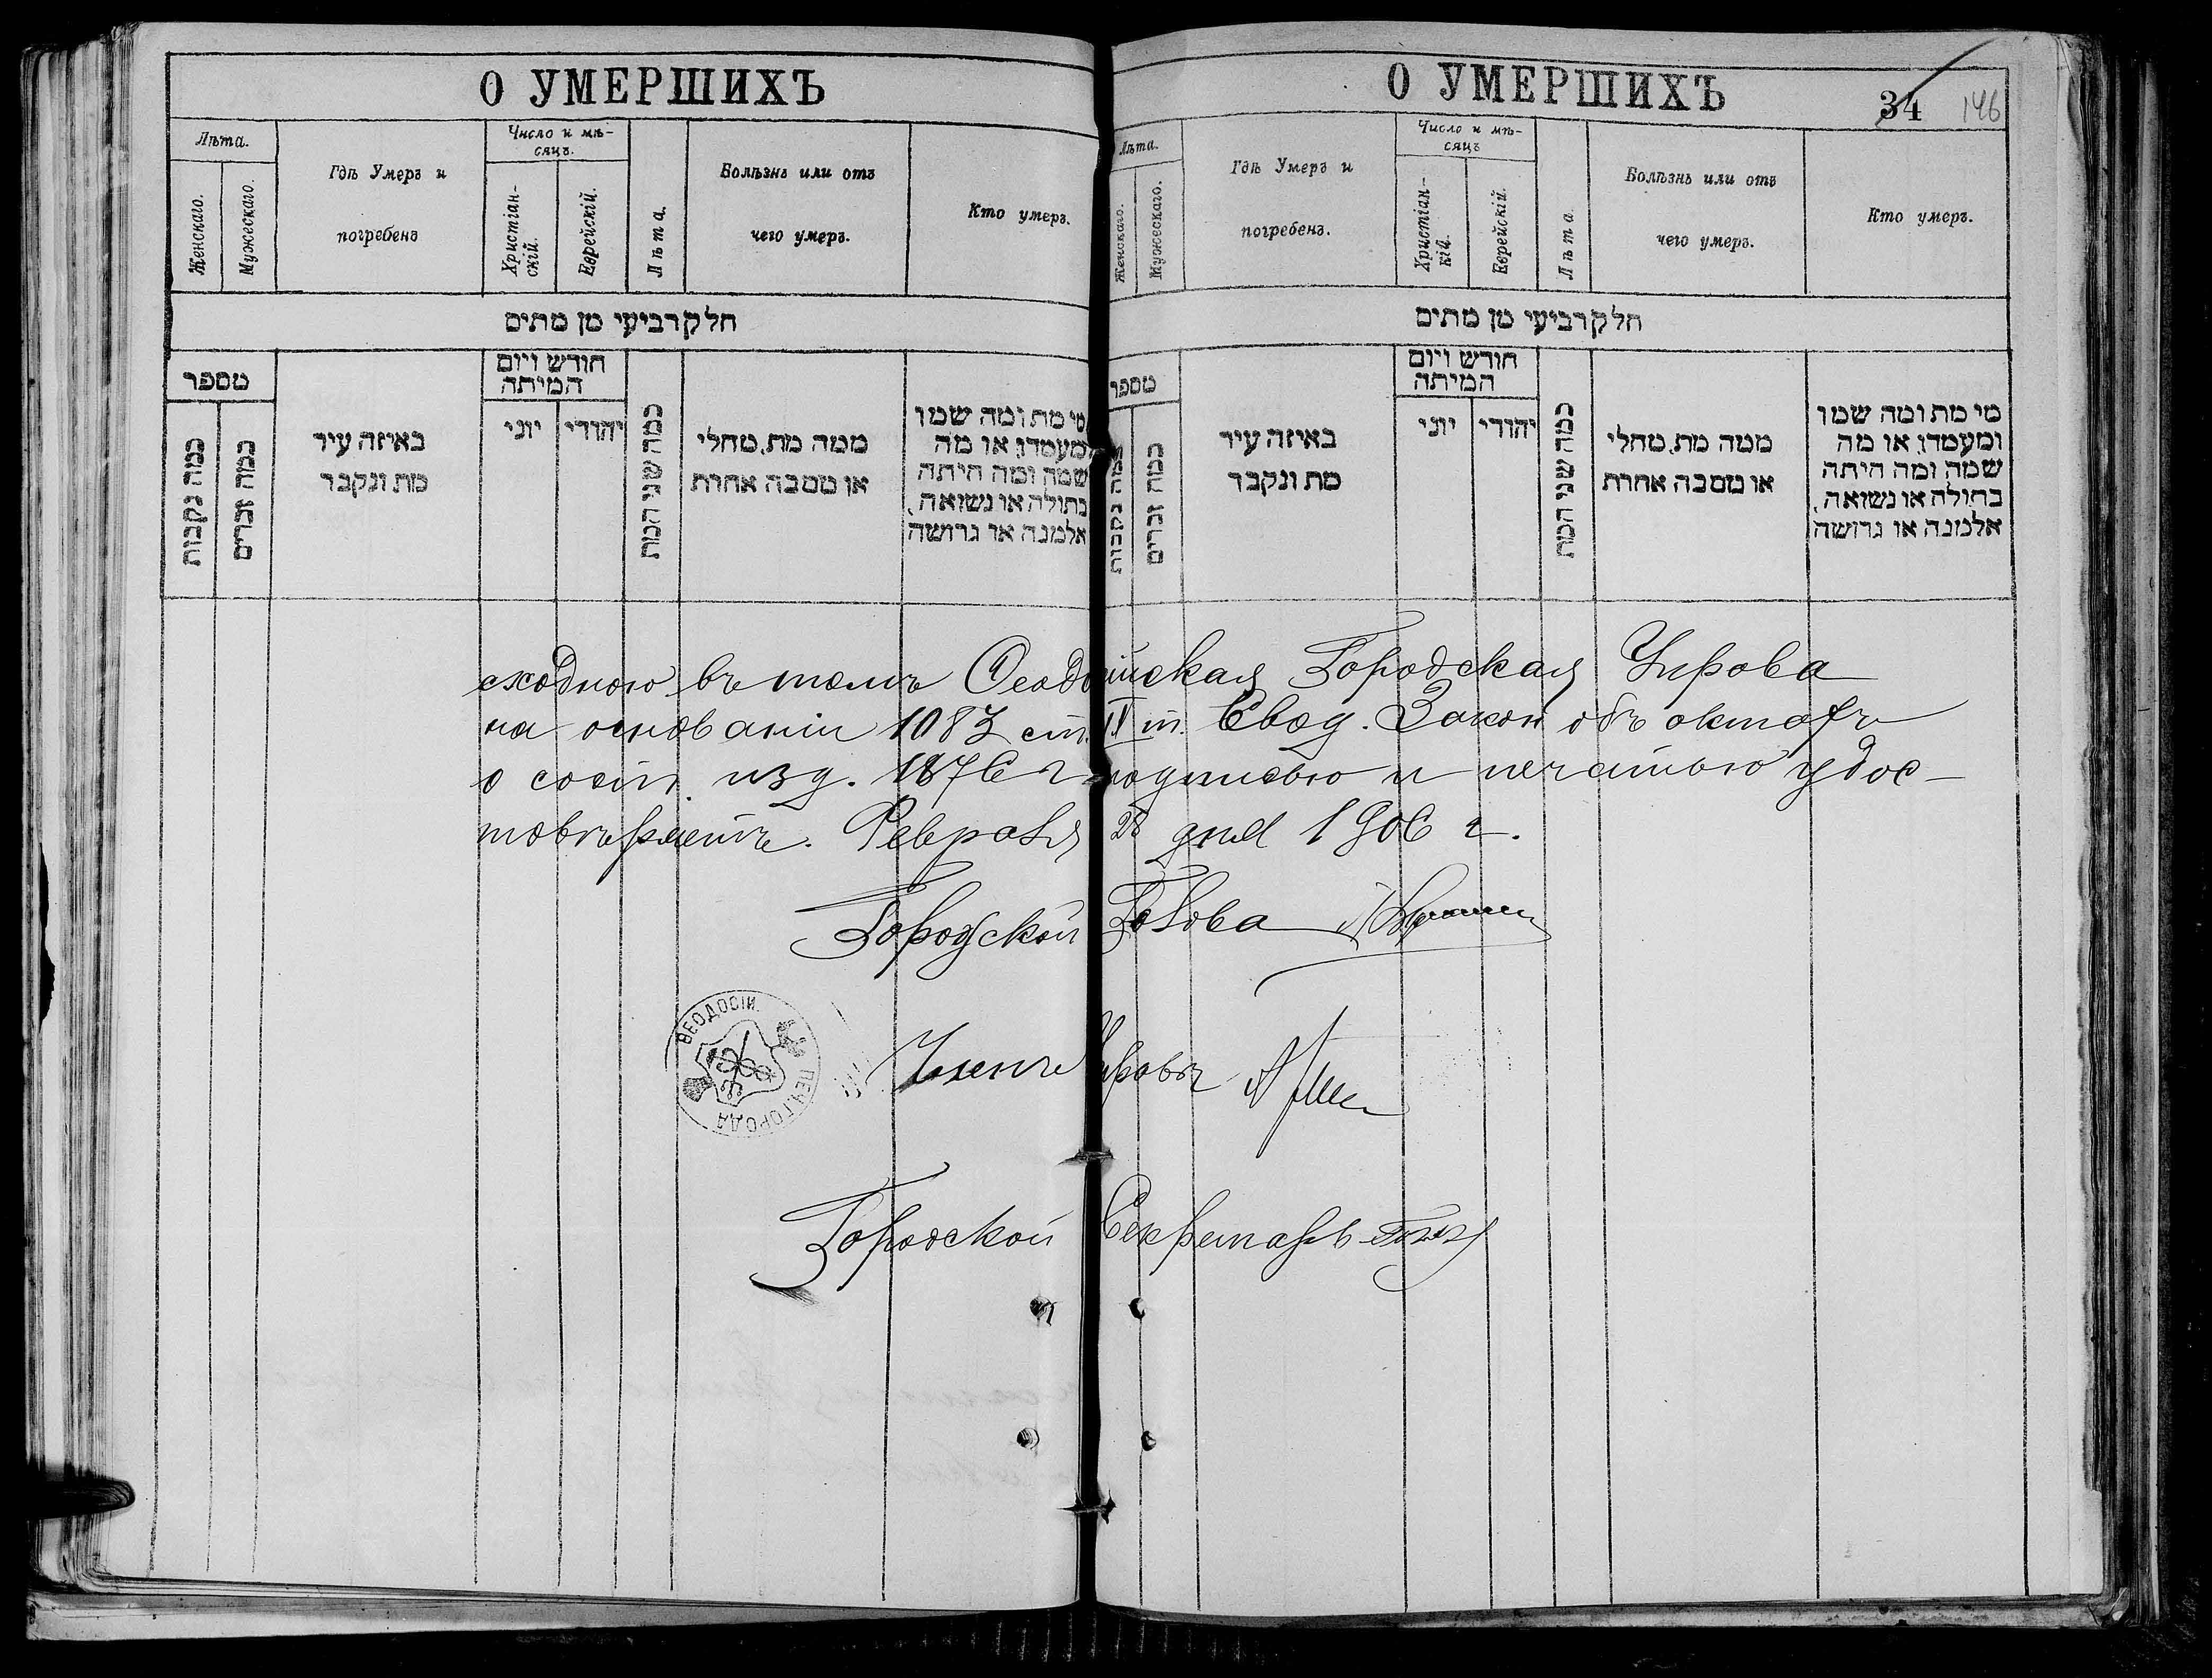 О УМЕРШИХЪ
Лѣта.
Женскаго.
Мужескаго.
Гдѣ Умеръ и
погребенъ
Число и мѣ-
сяцъ.
Христіан-
скій.
Еврейскій.
Лѣта.
Болѣзнь или отъ
чего умеръ.
Кто умеръ.
חלק רביעי מן מתים
מספר
כמה נקבות
כמה זכרים
באיזה עיר
מת ונקבר
חודש ויום
המיתה
יוני
יהודי
כמה שני המת
ממה מת, מחלי
או מסבה אחרת
מי מת ומה שמו
ומעמדו, או מה
שמה ומה היתה
בתולה או נשואה,
אלמנה או גרושה
О УМЕРШИХЪ
34 146
Лѣта.
Женскаго.
Мужескаго.
Гдѣ Умеръ и
погребенъ.
Число и мѣ-
сяцъ
Христіан-
кій.
Еврейскій.
Лѣта.
Болѣзнь или отъ
чего умеръ.
Кто умеръ.
חלק רביעי מן מתים
מספר
כמה נקבות
כמה זכרים
באיזה עיר
מת ונקבר
חודש ויום
המיתה
יוני
יהודי
כמה שני המת
ממה מת, מחלי
או מסבה אחרת
מי מת ומה שמו
ומעמדו, או מה
שמה ומה היתה
בתולה או נשואה,
אלמנה או גרושה
сходною въ томъ Ѳеодосійская Городская Управа
на основаніи 1083 ст. IX т. Свод. Закон объ актахъ
о сост. изд. 1876 г подписью и печатью удос-
товѣряетъ. Февраля 28 дня 1906 г.
Городской Голова
ѲЕОДОСІИ ПЕЧ. ГОРОДА
Членъ Управы
Городской Секретарь